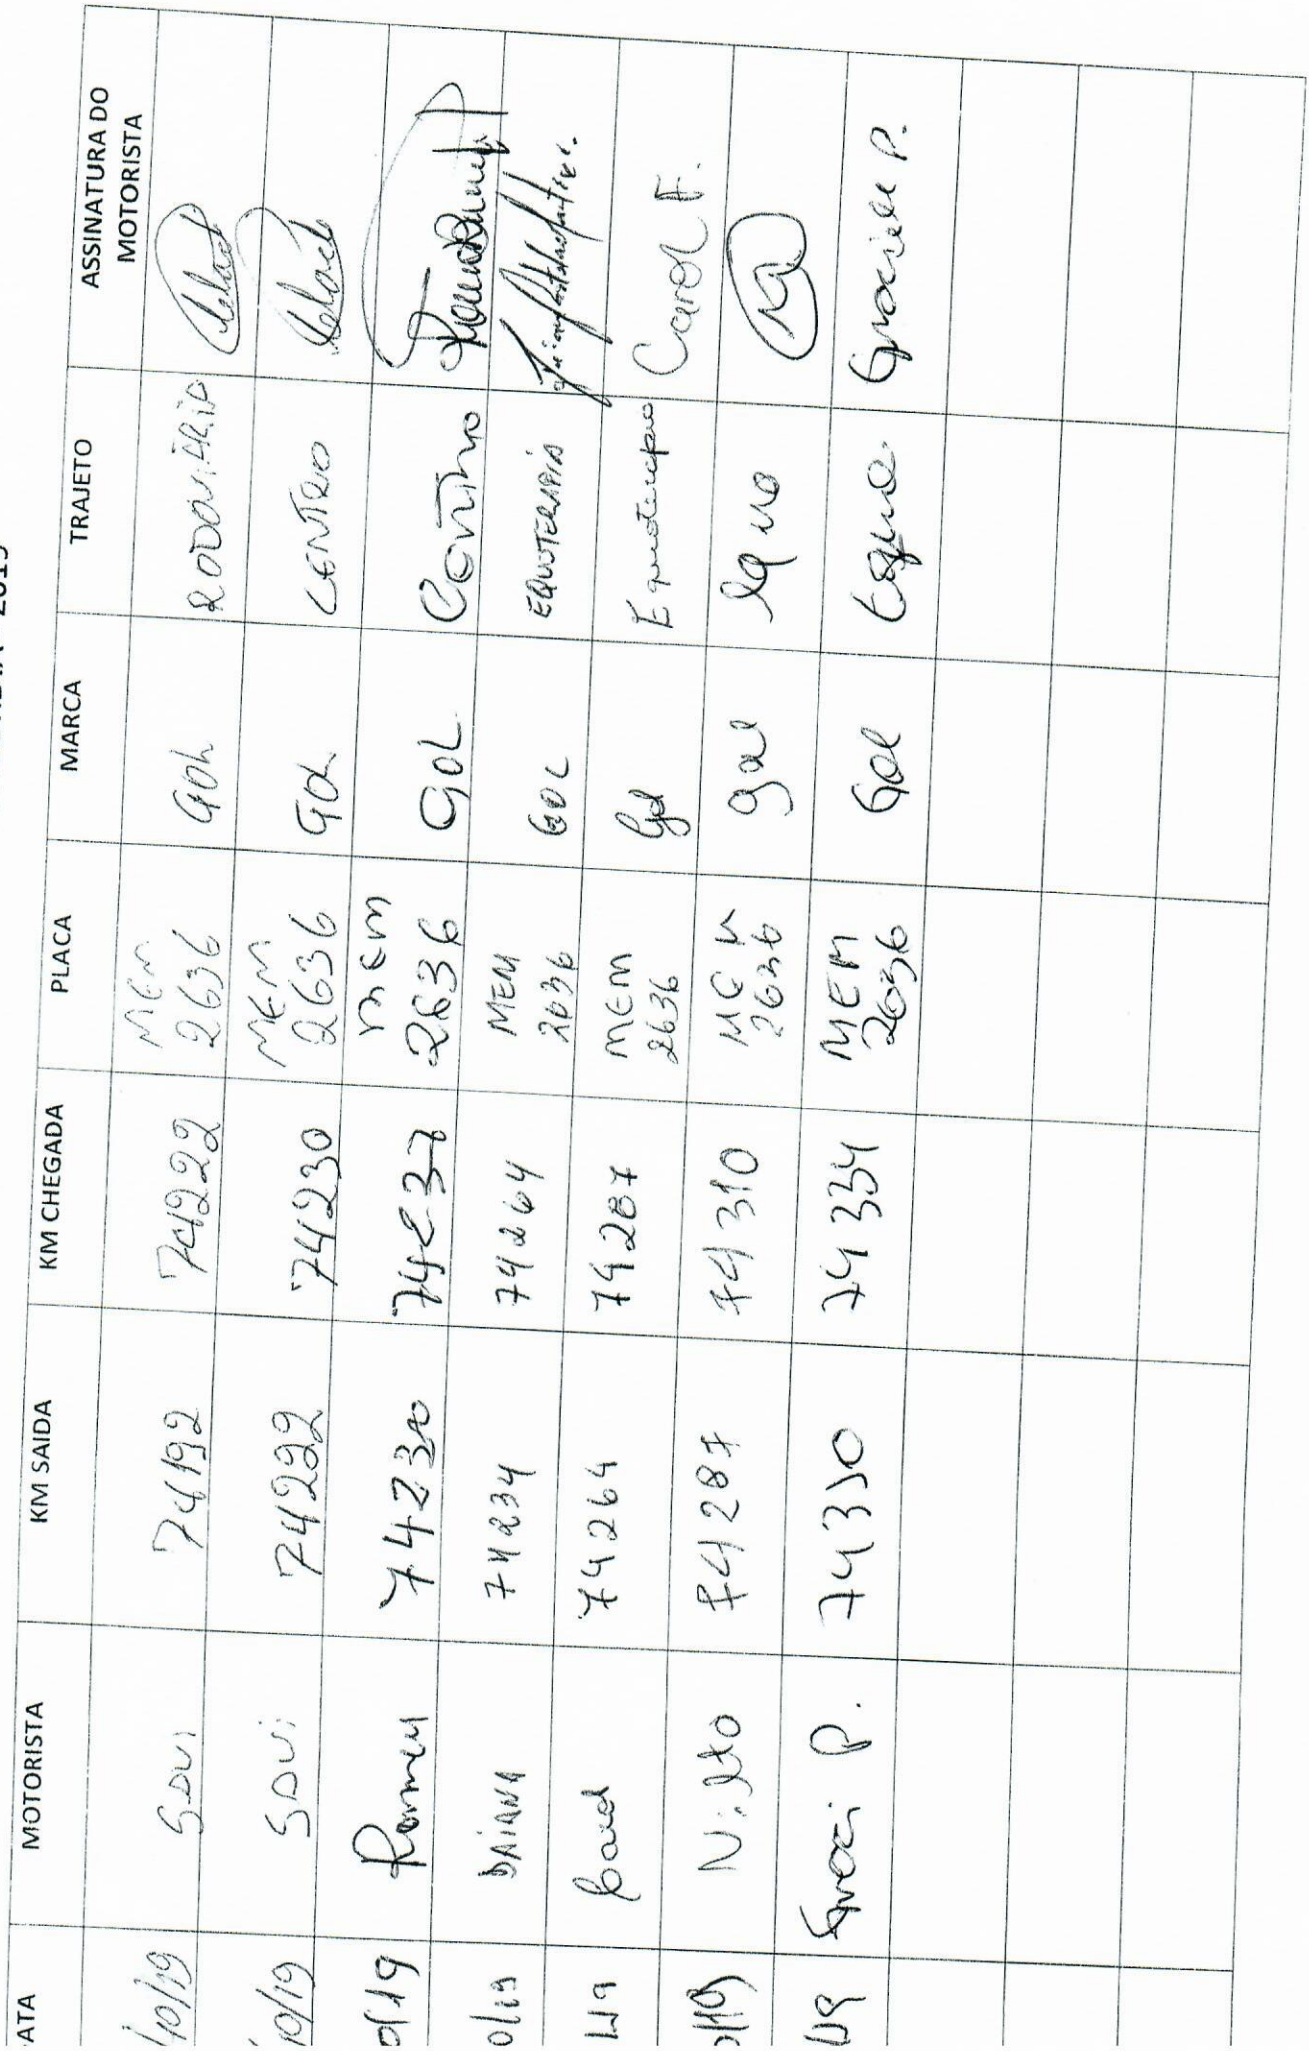 2019
ATA MOTORISTA KM SAIDA KM CHEGADA PLACA MARCA TRAJETO ASSINATURA DO MOTORISTA
10/19 SDVi 74192 74222 MEM 2636 GOL RODOVIÁRIA
10/19 SDVi 74222 74230 MEM 2636 GOL CENTRO
0/19 Romeu 74230 74237 mem 2636 GOL Centro
0/19 DAIANA 74234 74264 MEM 2636 GOL EQUOTERAPIA
1/19 Carol 74264 74287 MEM 2636 Gol Equoterapia Carol F.
0/19 Nilto 74287 74310 MEM 2636 gol equo
19 Graci P. 74310 74334 MEM 2636 Gol Equo Graciele P.